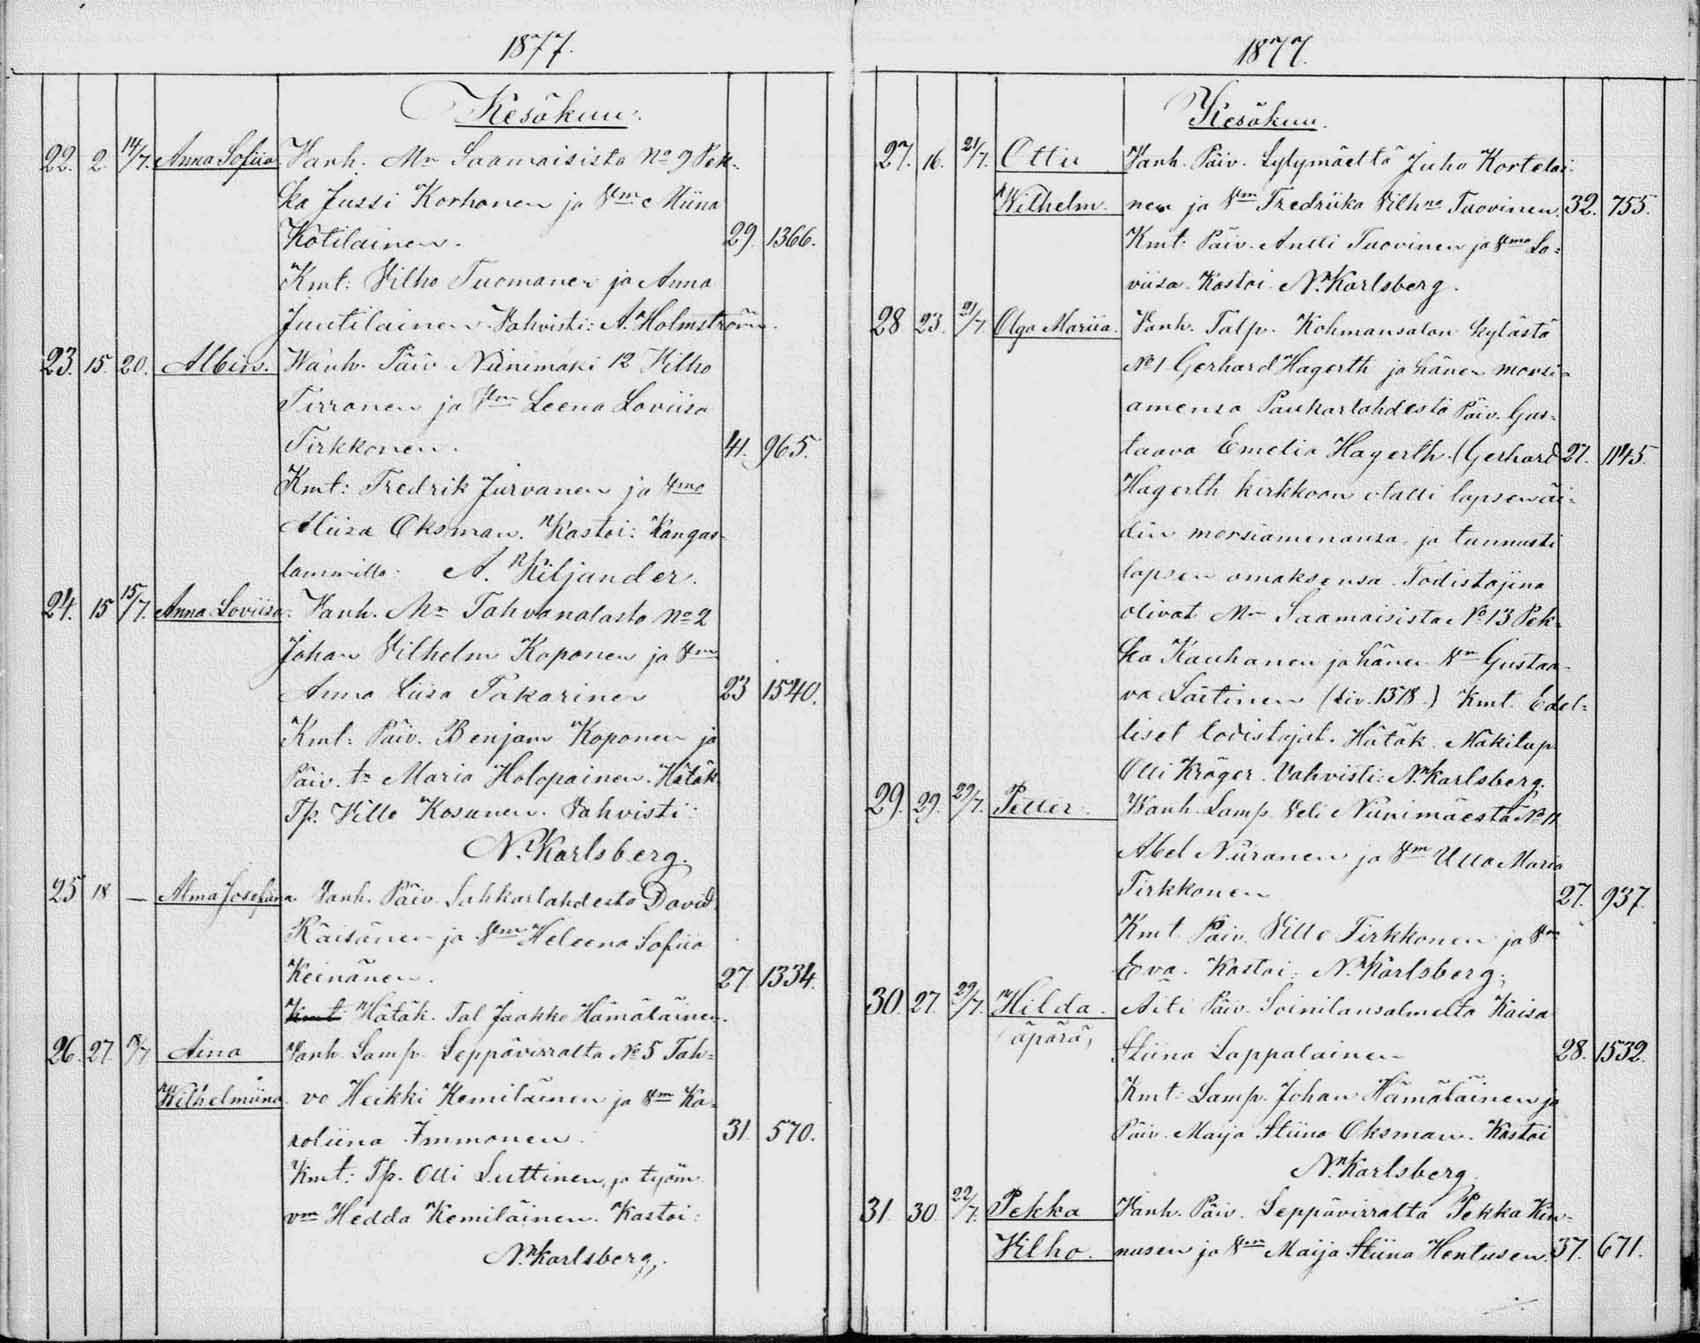 1877.
Kesäkuu.
22. 2. 14/7. Anna Sofiia Vanh. Mn Saamaisista No 9 Pek-
ka Jussi Korhonen ja Vm Miina
Kotilainen. 29. 1366.
Kmt: Vilho Tuomanen ja Anna
Juutilainen. Vahvisti: A. Holmström.
23. 15. 20. Wanh. Päiv Niinimäki 12 Vilho
Tirronen ja Vm Leena Loviisa
Tirkkonen. 41. 965.
Kmt: Fredrik Jurvanen ja Vmo
Oksman. Kastoi: Kangas-
lammilla. A. Kiljander.
24. 15 15/7. Anna Loviisa. Vanh. Mn Tahvanalasta No 2
Johan Vilhelm Koponen ja Vm
Anna Liisa Takarinen 23 1540.
Kmt: Päiv. Benjam Koponen ja
Päiv. tr Maria Holopainen. Hätäk
Tp. Ville Kosunen. Vahvisti:
N. Karlsberg.
25 18 — Alma Josefiina Vanh. Päiv. Sahkarlahdesta David
Räisänen ja Vm Heleena Sofiia
Keinänen. 27 1334.
Kmt Hätäk. Tal Jaakko Hämäläinen.
26. 27 Aina Vanh. Lamp. Leppävirralta No 5 Tah-
Wilhelmiina. vo Heikki Kemiläinen ja Vm Ka-
roliina Immonen. 31. 570.
Kmt: Tp. Olli Luttinen, ja työm.
vm Hedda Kemiläinen. Kastoi:
N. Karlsberg.
1877.
Kesäkuu.
27. 16. 21/7. Otto Vanh. Päiv. Lylymäeltä Juho Kortelai-
Wilhelm. nen ja Vm Fredriika Vilhna Tuovinen. 32. 755.
Kmt: Päiv. Antti Tuovinen ja Vmo Lo-
viisa. Kastoi N. Karlsberg.
28 23. 21/7. Olga Mariia. Vanh. Talp. Kohmansalon kylästä
No 1 Gerhard Hagerth ja hänen morsi-
amensa Paukarlahdesta Päiv. Gus-
taava Emelia Hagerth. (Gerhard 27. 1145.
Hagerth kirkkoon otatti lapsen äi-
din morsiamenansa, ja tunnusti
lapsen omaksensa. Todistajina
olivat Mn Saamaisista No 13 Pek-
ka Kauhanen ja hänen Vm Gustaa-
va Laitinen (siv. 1378.) Kmt. Edel-
liset todistajat. Hätäk. Mäkitup
Olli Kröger. Vahvisti: N. Karlsberg.
29. 29. 29/7. Petter. Wanh. Lamp. Veli Niinimäestä No 11
Abel Niiranen ja Vm Ulla Maria
Tirkkonen 27. 937.
Kmt Päiv. Ville Tirkkonen ja Vm
Eva. Kastoi: N. Karlsberg.
30. 27. 29/7. Hilda. Äiti Päiv. Soinilansalmelta Kaisa
(äpärä) Stiina Lappalainen 28. 1532.
Kmt: Lamp. Johan Hämäläinen ja
Päiv. Maija Stiina Oksman. Kastoi
N. Karlsberg.
31. 30. 22/7. Pekka Vanh. Päiv. Leppävirralta Pekka Kin-
Vilho. nusen ja Vm Maija Stiina Hentusen. 37. 671.